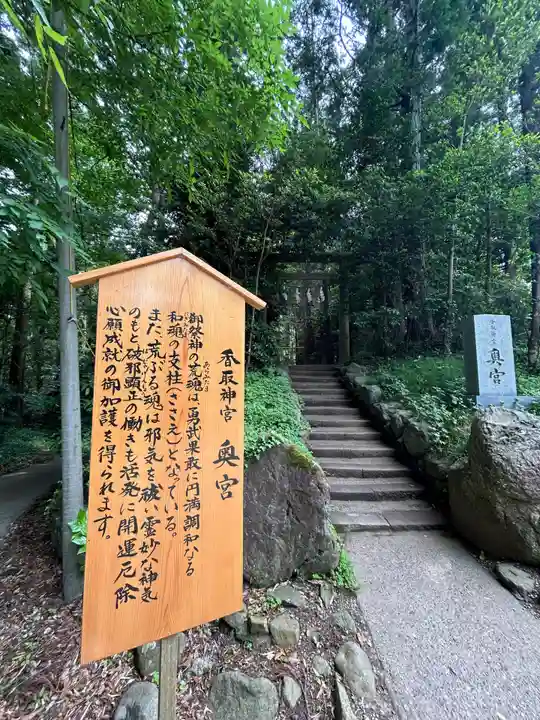 香取神宮 奥宮
御祭神の荒魂は勇武果敢に円満調和なる
あらみたま
和魂の支柱(ささえ)となっている。
また荒ぶる魂は邪気を祓い霊妙な神気
のもと、破邪顕正の働きも活発に開運厄除
心願成就の御加護を得られます。
香取神宮
奥宮